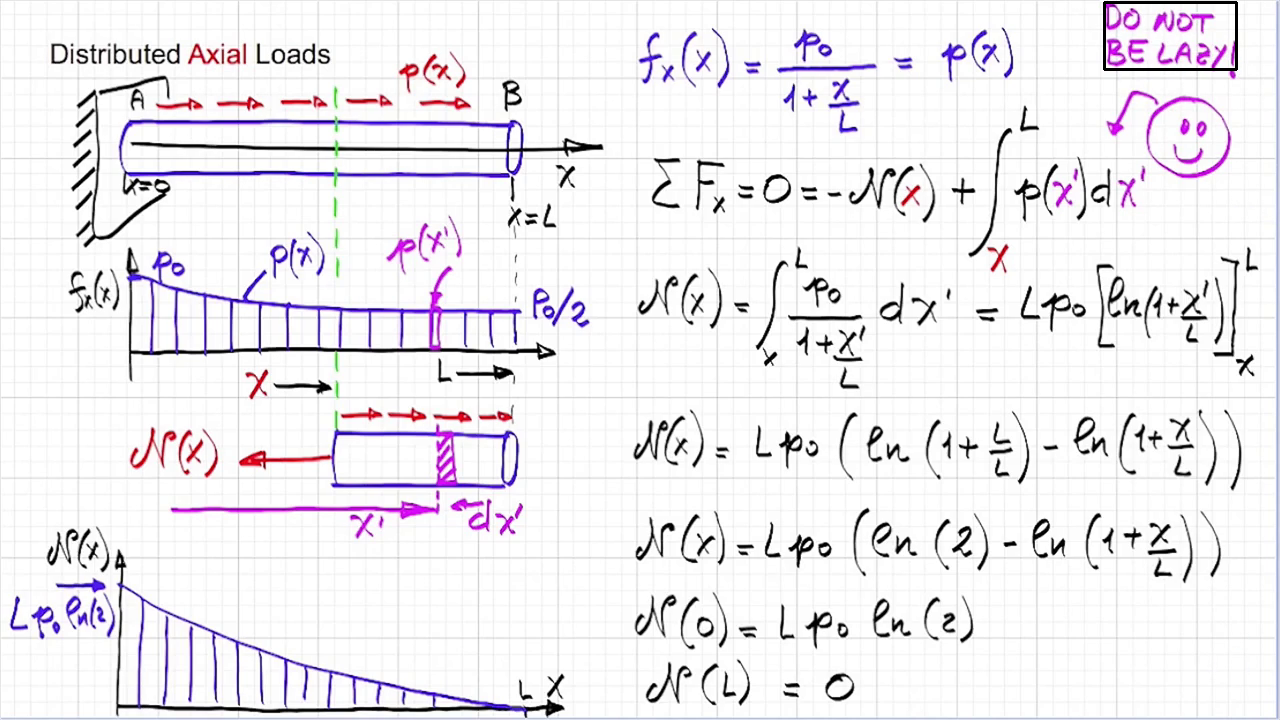 Distributed Axial Loads
A
p(x)
B
x=0
x
x=L
fx(x)
p0
p(x)
p(x')
p0/2
x
L
N(x)
x'
dx'
N(x)
Lp0 ln(2)
L x
DO NOT
BE LAZY!
fx(x) = p0/(1+x/L) = p(x)
ΣFx = 0 = -N(x) + ∫_x^L p(x')dx'
N(x) = ∫_x^L p0/(1+x'/L) dx' = Lp0 [ln(1+x'/L)]_x^L
N(x) = Lp0 (ln(1+L/L) - ln(1+x/L))
N(x) = Lp0 (ln(2) - ln(1+x/L))
N(0) = Lp0 ln(2)
N(L) = 0